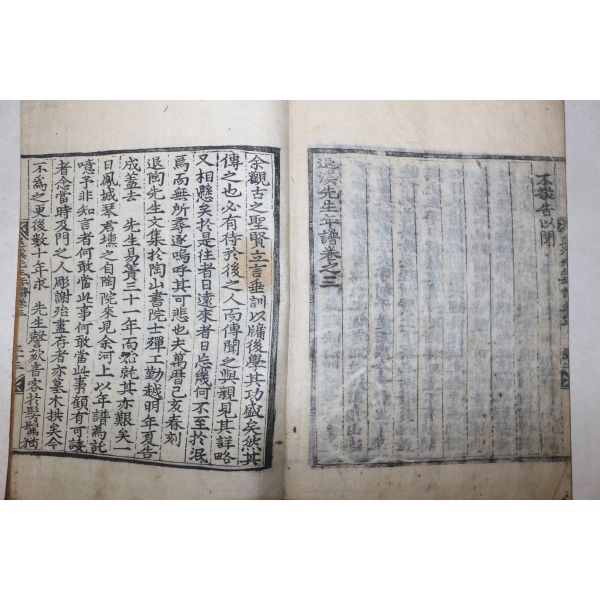 不敢告以聞
退溪先生年譜卷之三
余觀古之聖賢立言垂訓以牖後學其功盛矣然其
傳之也必有待於後之人而傳聞之與親見其詳略
又相懸矣於是往者日遠來者日片幾何不至於泯
焉而無所尋逐嗚呼其可悲也夫萬曆己亥春刻
退陶先生文集於陶山書院士殫工勤越明年夏告
成蓋去 先生易簀三十一年而然就其亦艱矣一
日鳳城琴君壎之自陶院來見余河上以年譜為託
噫予非知言者何敢當此事何敢當此事顧有可諉
者念當時及門之人彫謝殆盡存者亦墓木拱矣今
不為之更後數十年求 先生謦欬音容於髣髴猗